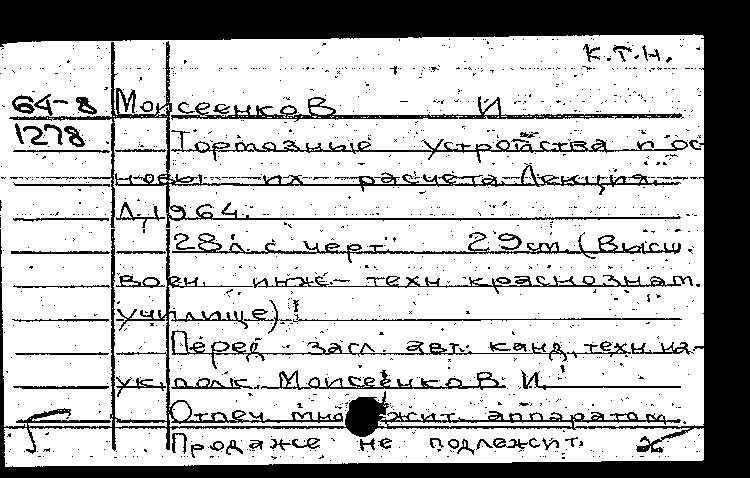 К.Т.Н.
64-8 Моисеенко, В И
1278 Тормозные устройства и ос-
новы их расчета. Лекция.
Л., 1964.
28л. с черт. 29см. (Высш.
воен. инж-техн. краснознам.
училище).
Перед загл. авт.: канд. техн. на-
ук, полк. Моисеенко В. И.
Отпеч. множит. аппаратом.
Продаже не подлежит.